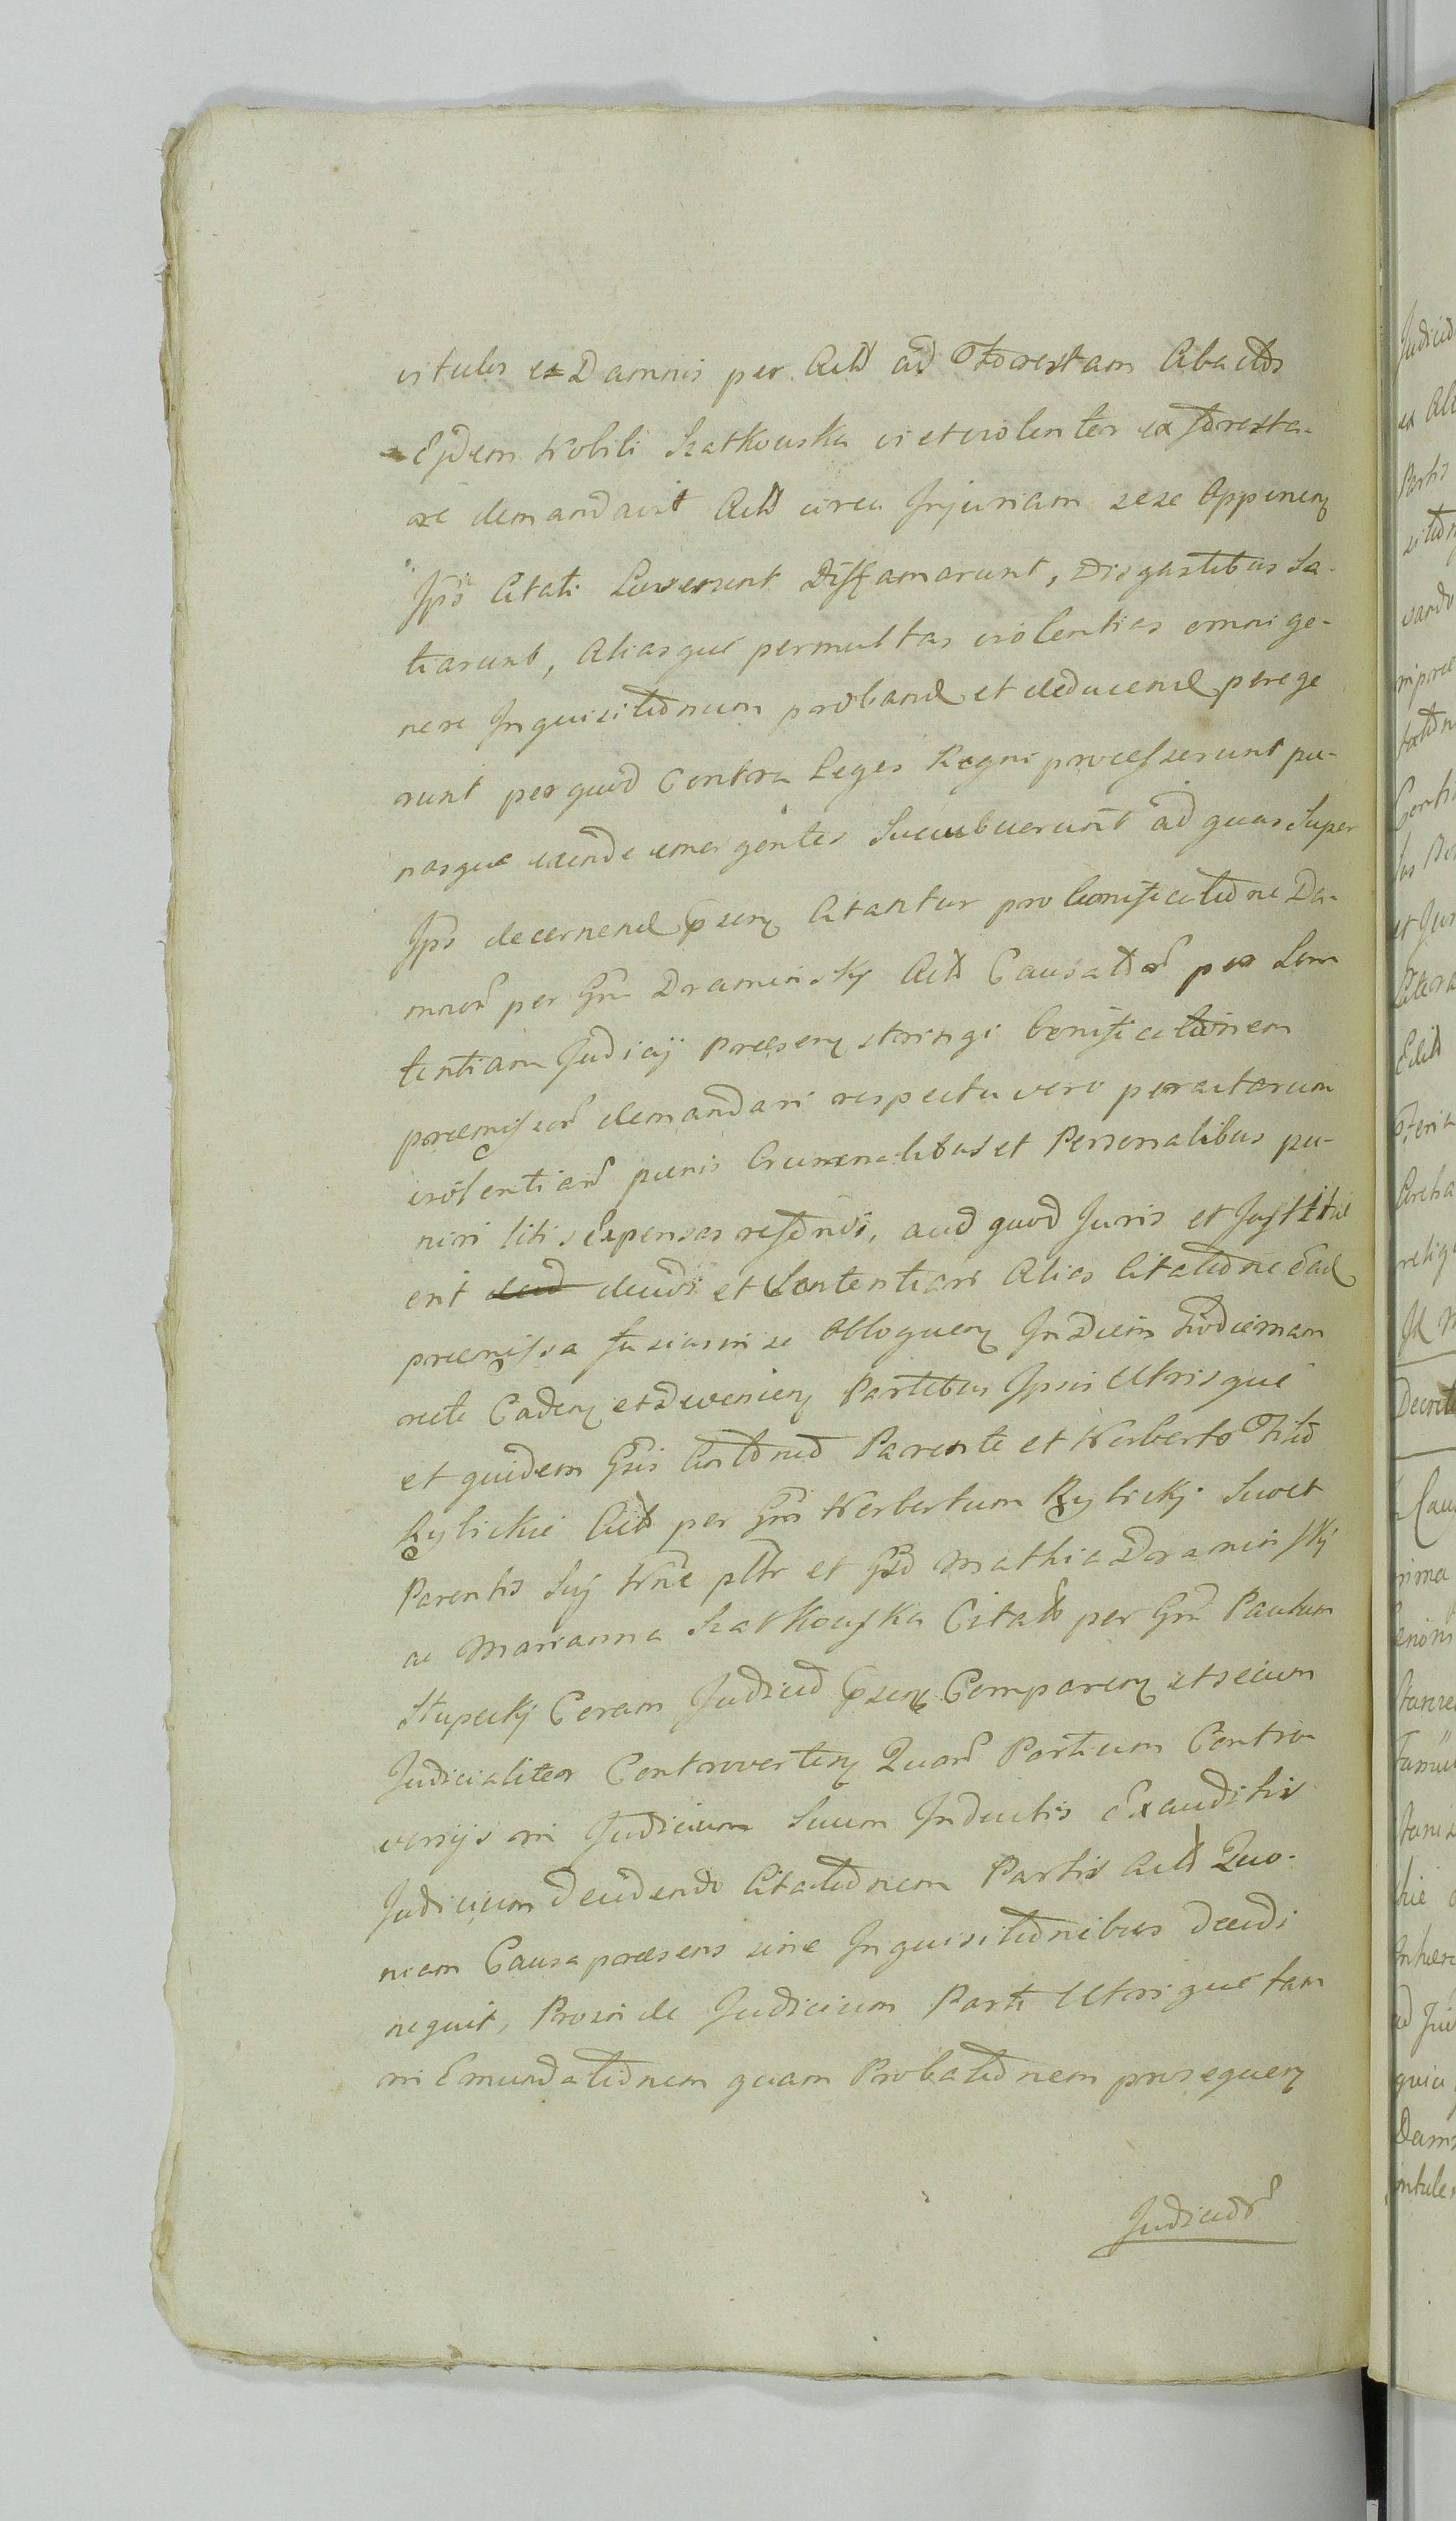 vitulos ex Damnis per Actt ad Forestam Abactos
Ejdem Nobili Szatkowska vi et violenter exforesta-
re demandavit Actt circa Injuriam sese Opponen
Ipsi Citati Laeserunt Diffamarunt, Disgustibus Sa-
tiarunt, Aliasque permultas violentias omni ge-
nere Inquisitionum proband et deducend perege
runt per quod Contra Leges Regni processerunt pœ-
nasque exinde emergentes Succubuerunt ad quas Super
Ips decernend psen Citantur pro bonificatione Da-
mnor per Gm Draminsky Actt Causator per Sen
tentiam Judicij præsen stringi bonificationem
præmissor demandari respectu vero peractarum
violentiar pœnis Criminalibus et Personalibus pu-
niri litis Expensas refondi, aud quod Juris et Justitiæ
erit decidi et Sententiari Alias Citatione ead
præmissa fusius in se Obloquen In Diem Hodiernam
recte Caden et Devenien Partibus Ipsis Utrisque
et quidem Gsis Antonio Parente et Norberto Filio
Rylickie Actt per Gm Norbertum Rylicky Suo et
Parentis Sui Nne pltr et Gso Mathia Draminsky
ac Marianna Szatkowska Citatt per Gm Paulum
Stupecky Coram Judicio psen Comparen et secum
Judicialiter Controverten Quar Partium Contro
versijs in Judicium Suum Inductis Exauditis
Judicium Decidendo Citationem Partis Actt Quo-
niam Causa præsens sine Inquisitionibus Decidi
nequit, Proinde Judicium Parti Utrique tam
in Emundationem quam Probationem prosequen
Judicior
Judicio
ex Ali
Partis
vando
et Jur
Decret
quia
Damn
intule